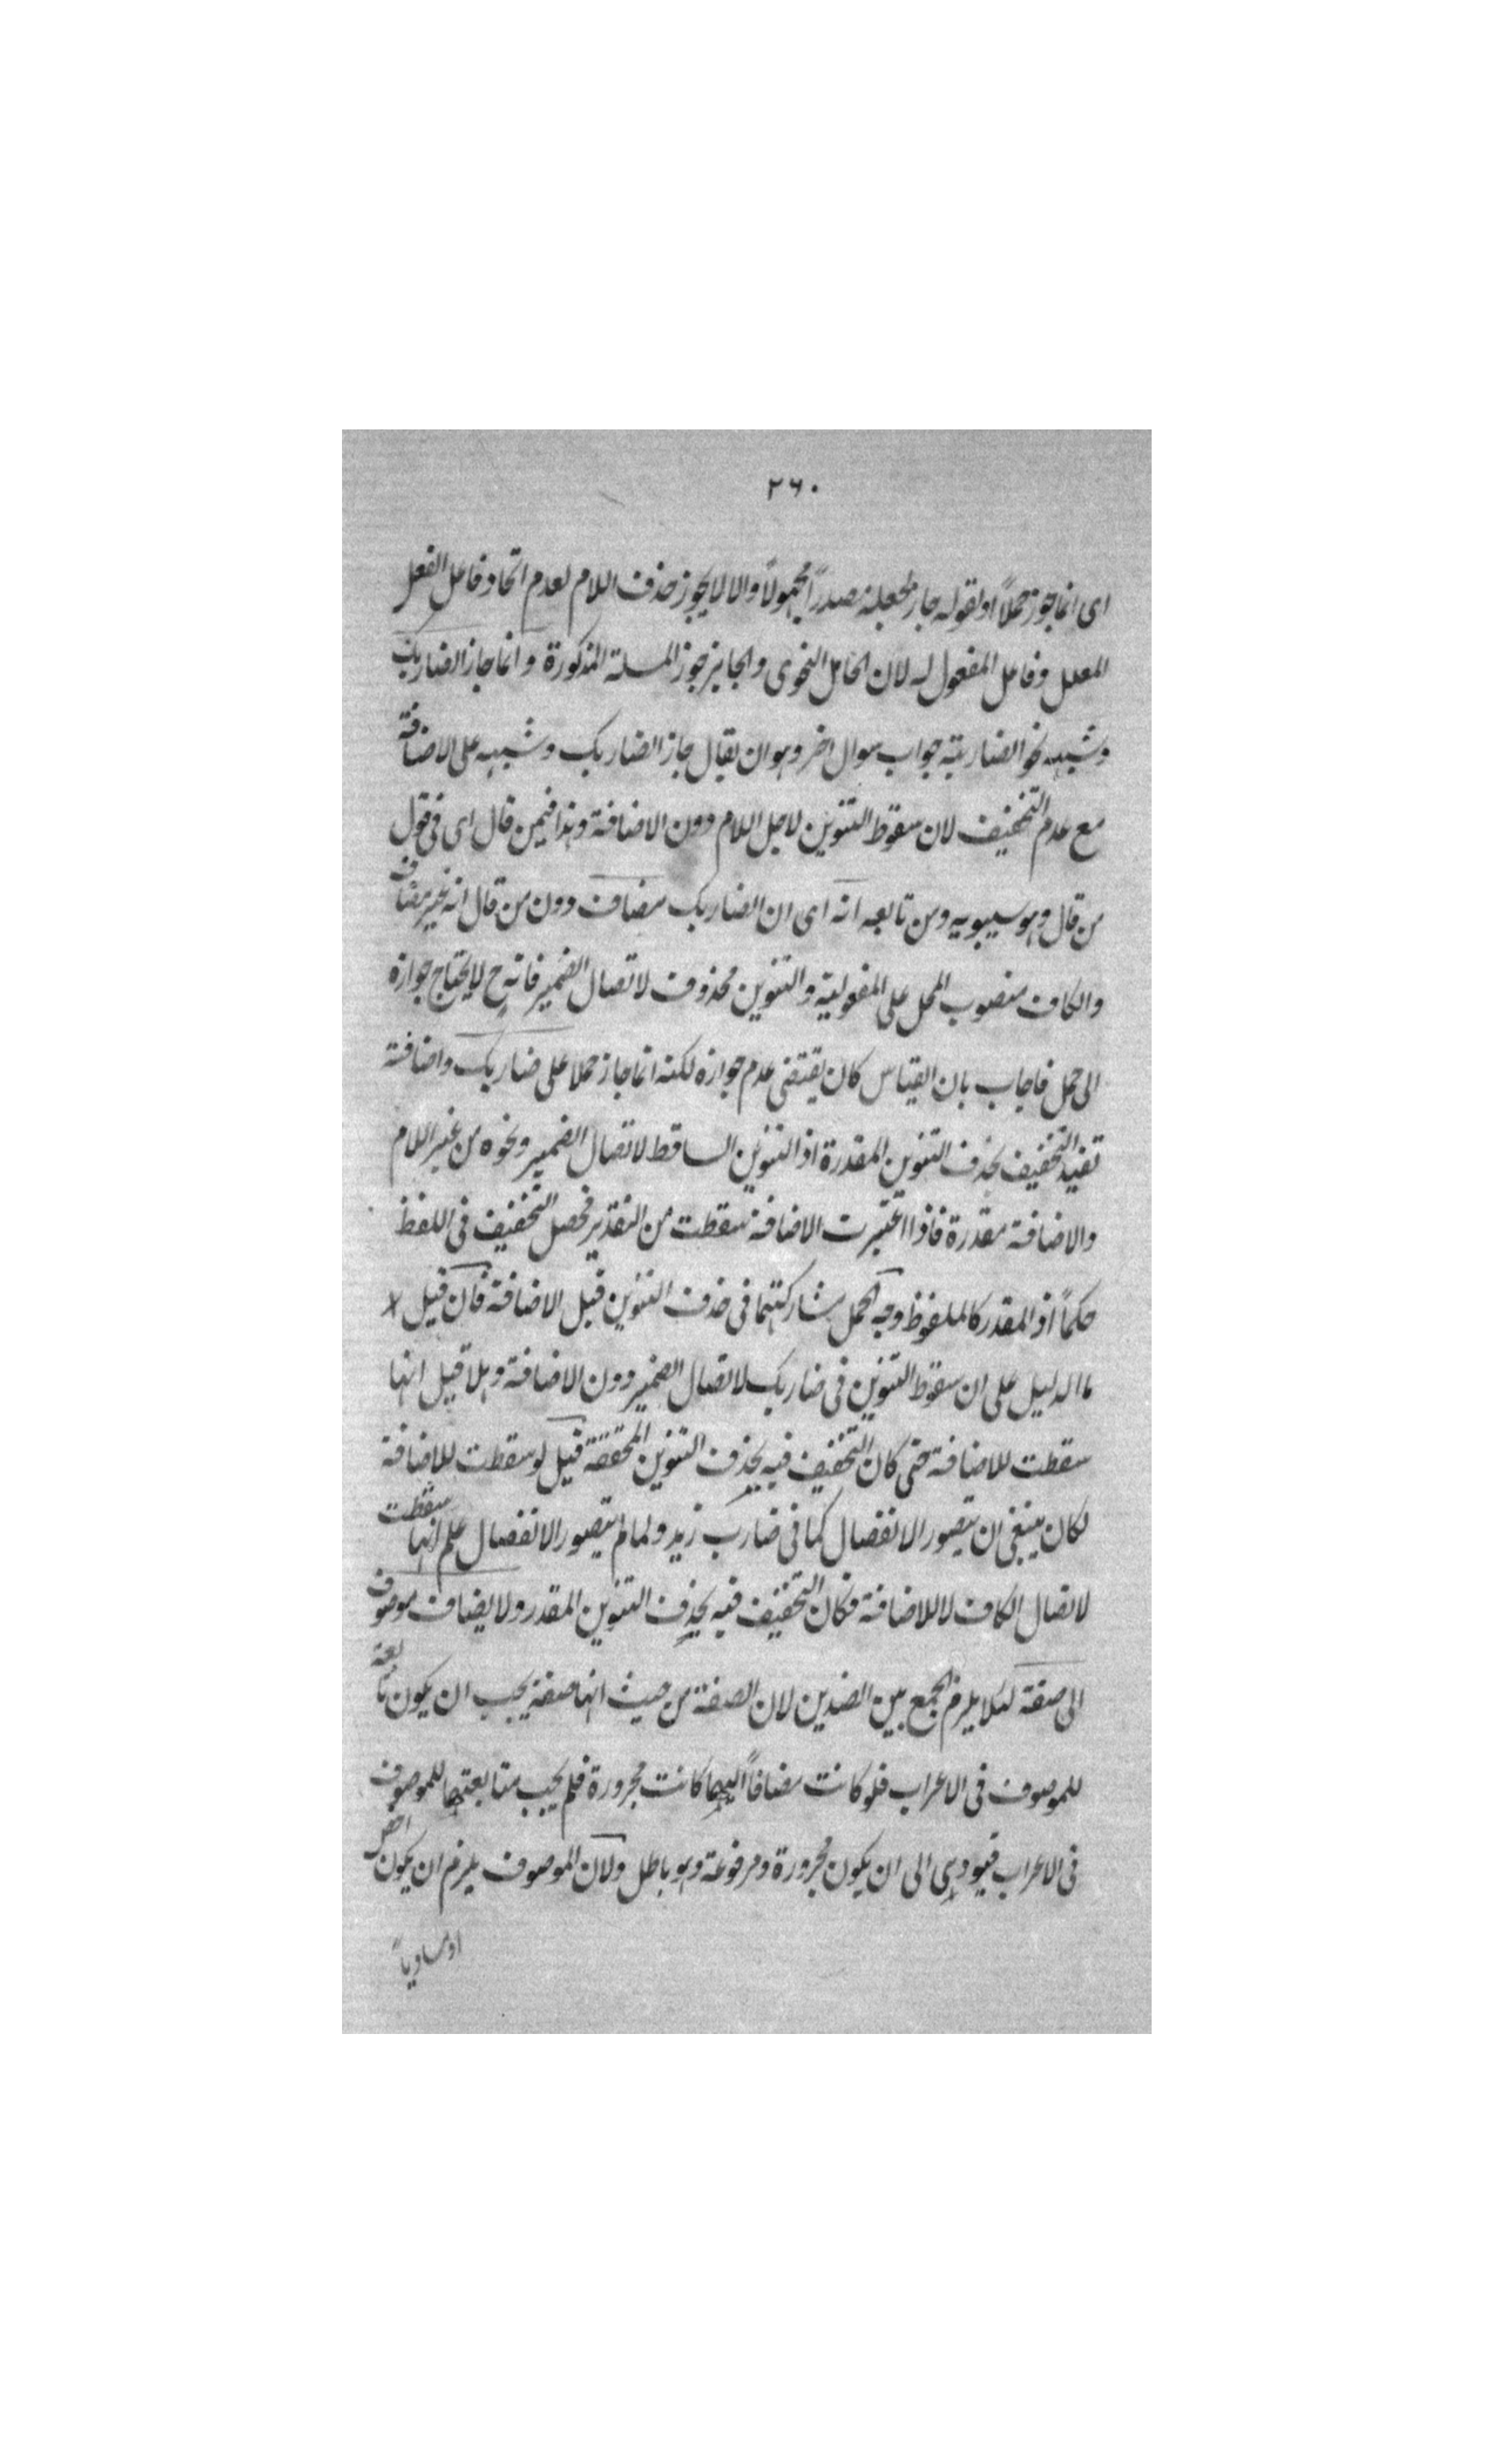 ٢٦٠
اى انما جوز حملاً او لقوله جاز بجعله مصدراً مجهولاً والا لا يجوز حذف اللام لعدم اتحاد فاعل الفعل
المعلل وفاعل المفعول له لان الحامل النحوى والجايز جوز المسئلة المذكورة وانما جاز الضاربك
وشبهه نحو الضاربته جواب سوال اخر وهو ان يقال جاز الضاربك وشبهه على الاضافة
مع عدم التخفيف لان سقوط التنوين لاجل اللام دون الاضافة وهذا فيمن قال اى فى قول
من قال وهو سيبويه ومن تابعه انه اى ان الضاربك مضاف دون من قال انه غير مضاف
والكاف منصوب المحل على المفعولية والتنوين محذوف لاتصال الضمير فانه ح لا يحتاج جوازه
الى حمل فاجاب بان القياس كان يقتضى عدم جوازه لكنه انما جاز حملا على ضاربك واضافته
تفيد التخفيف بحذف التنوين المقدرة اذ التنوين الساقط لاتصال الضمير ونحوه من غير اللام
والاضافة مقدرة فاذا اعتبرت الاضافة سقطت من التقدير فحصل التخفيف فى اللفظ
حكماً اذ المقدر كالملفوظ وجه الحمل مشاركتهما فى حذف التنوين قبل الاضافة فان قيل
ما الدليل على ان سقوط التنوين فى ضاربك لاتصال الضمير دون الاضافة وهلا قيل انها
سقطت للاضافة حتى كان التخفيف فيه بحذف التنوين المحققة قيل لو سقطت للاضافة
لكان ينبغى ان يتصور الانفصال كما فى ضارب زيد ولما لم يتصور الانفصال علم انها سقطت
لاتصال الكاف لا للاضافة فكان التخفيف فيه بحذف التنوين المقدر ولا يضاف موصوف
الى صفة لئلا يلزم الجمع بين الضدين لان الصفة من حيث انها صفة يجب ان يكون تابعة
للموصوف فى الاعراب فلو كانت مضافاً اليها كانت مجرورة فلم يجب متابعتها للموصوف
فى الاعراب فيودى الى ان يكون مجرورة ومرفوعة وهو باطل ولان الموصوف يلزم ان يكون اخص
او مساوياً